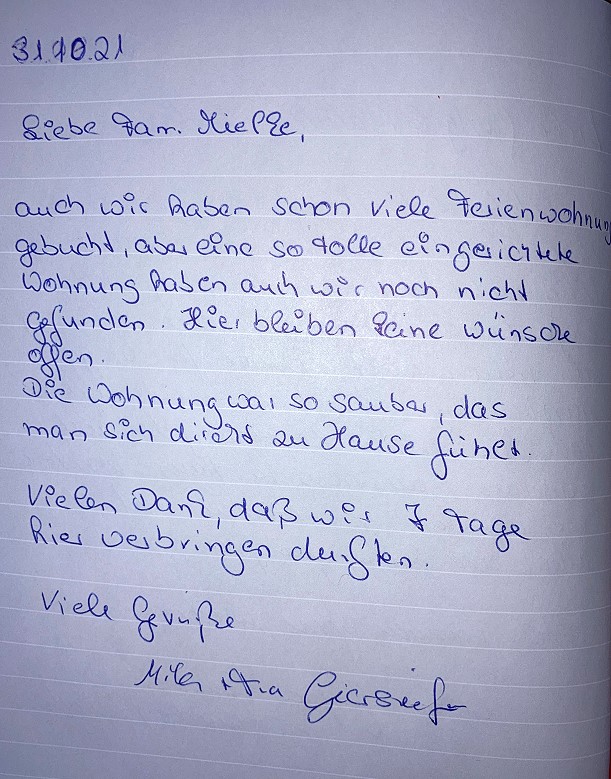 31.10.21
Liebe Fam. Mielke,
auch wir haben schon viele Ferienwohnung
gebucht, aber eine so tolle eingerichtete
Wohnung haben auch wir noch nicht
gefunden. Hier bleiben keine wünsche
offen.
Die Wohnung war so sauber, das
man sich direkt zu Hause fühlt.
Vielen Dank, daß wir 7 Tage
hier verbringen durften.
Viele Grüße